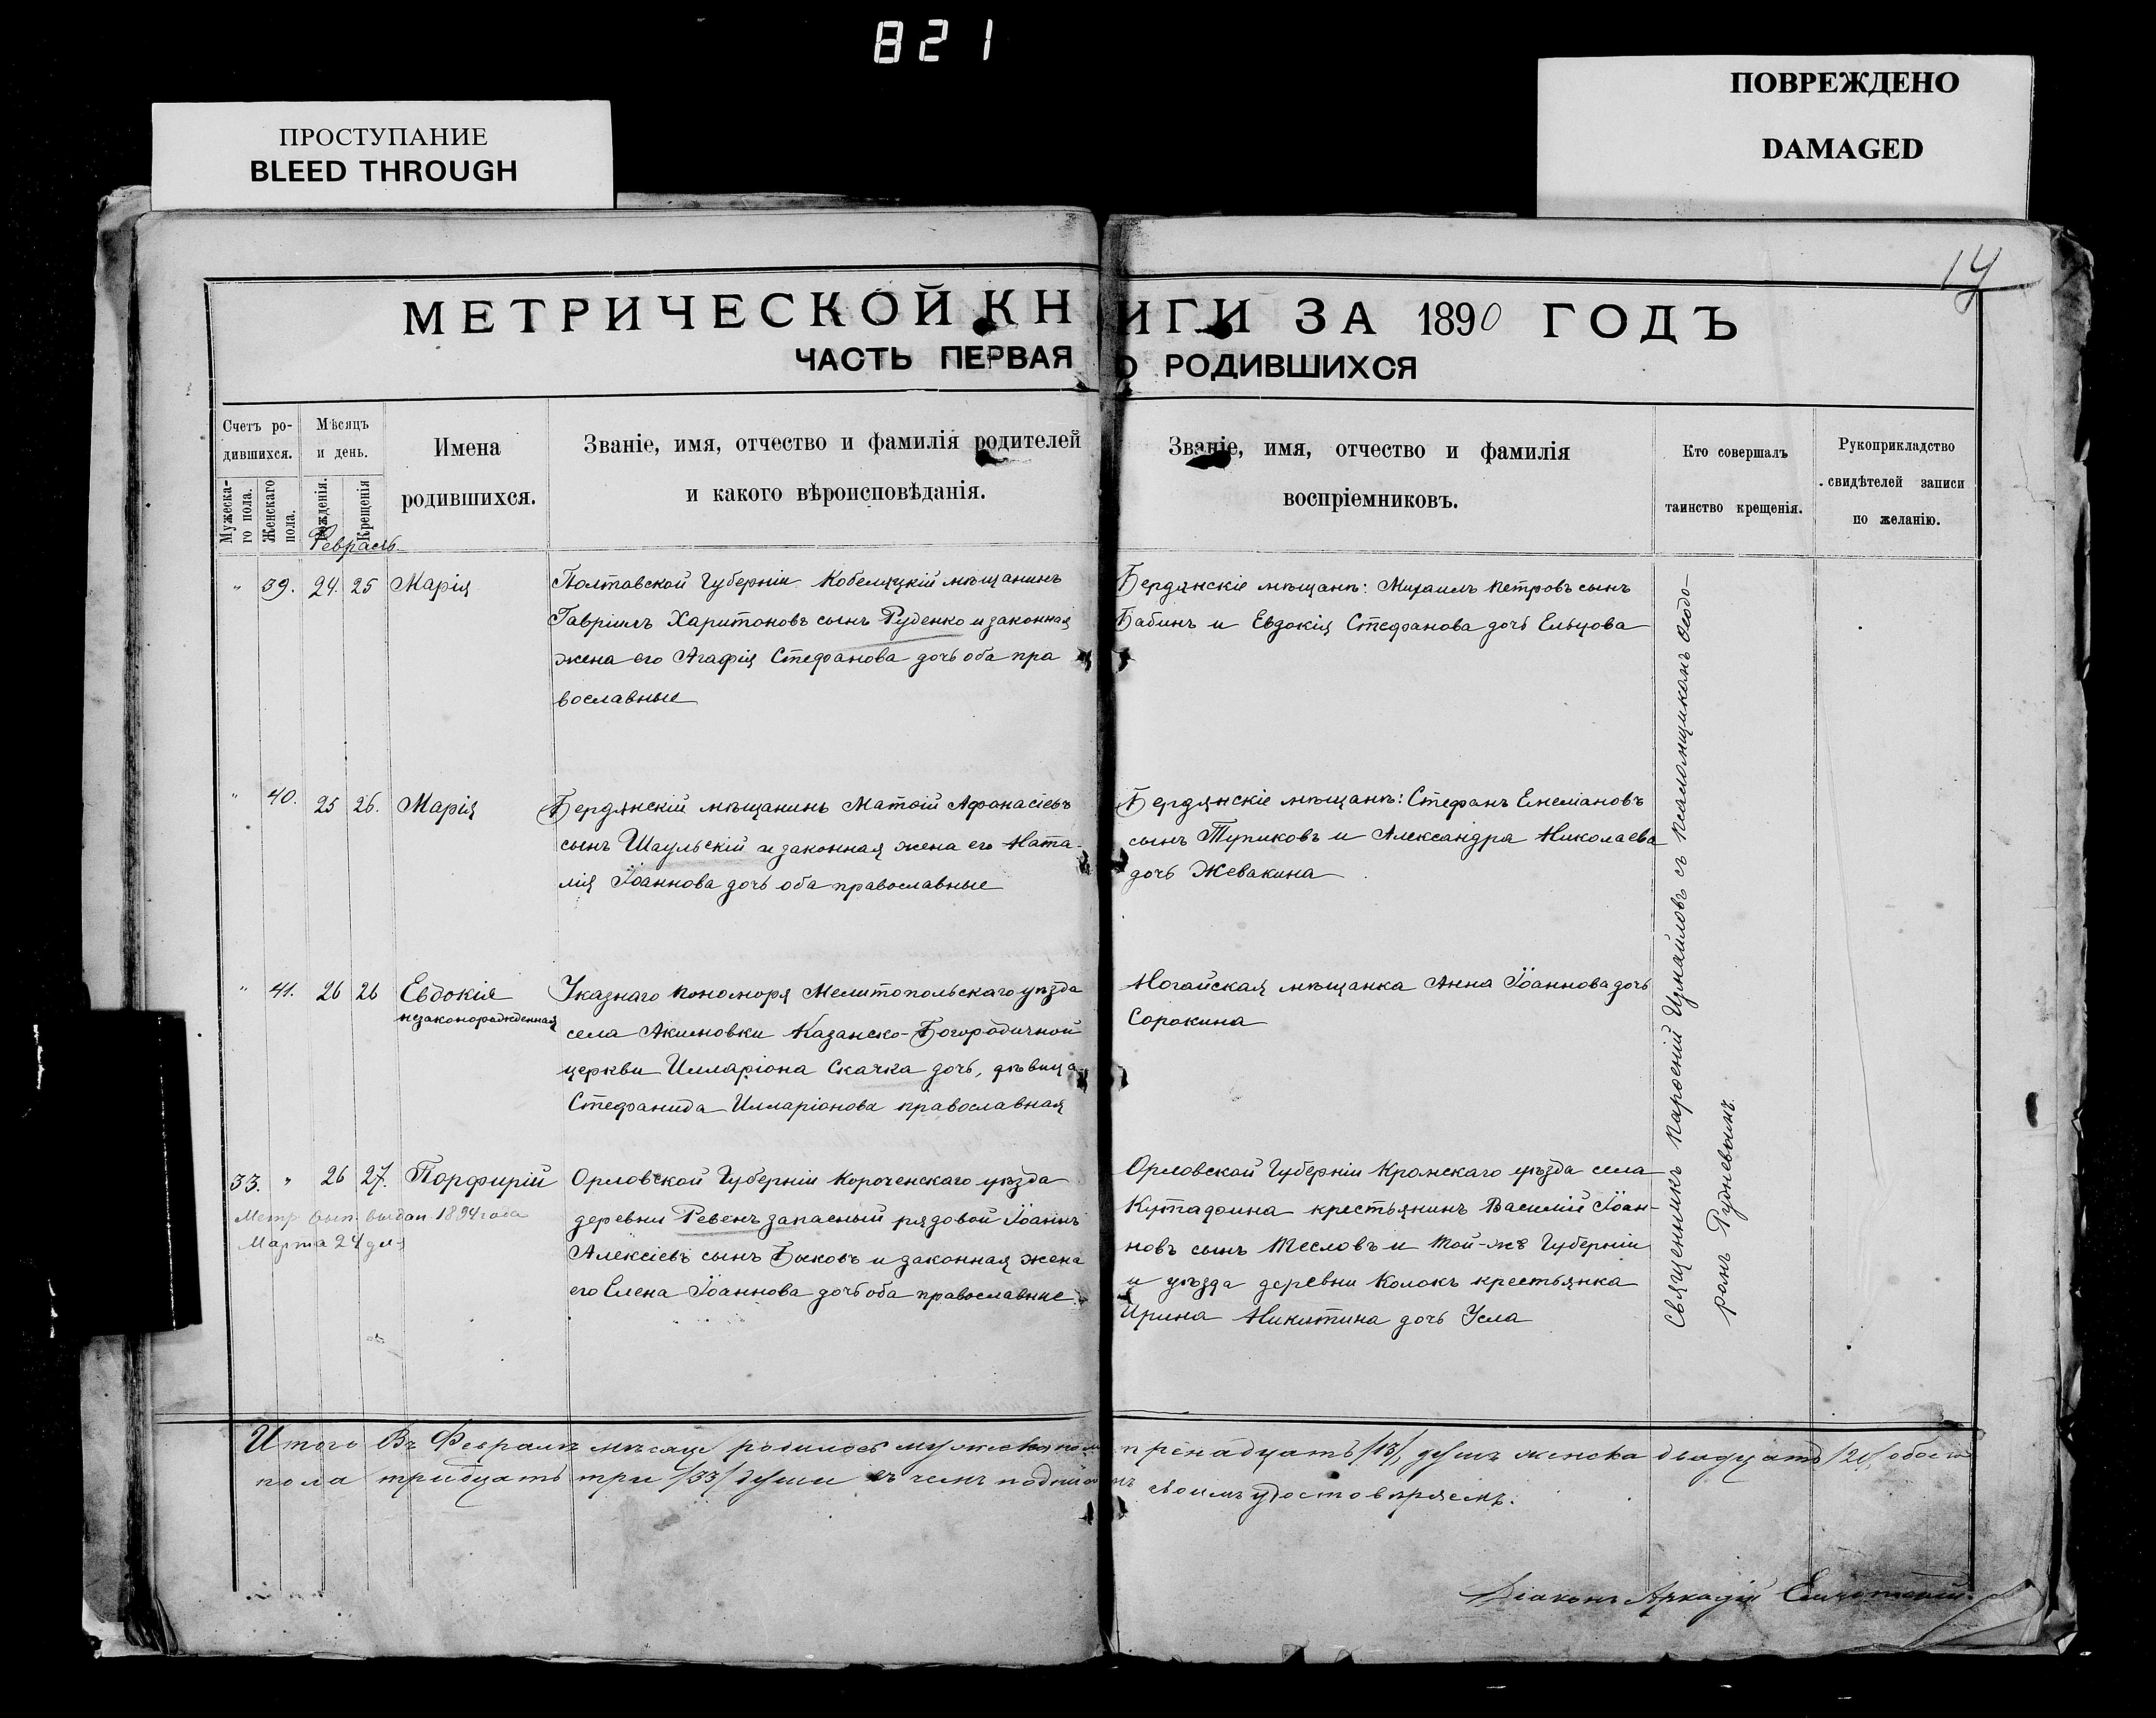 821
ПРОСТУПАНИЕ
BLEED THROUGH
ПОВРЕЖДЕНО
DAMAGED
МЕТРИЧЕСКОЙ КНИГИ ЗА 1890 ГОДЪ
ЧАСТЬ ПЕРВАЯ О РОДИВШИХСЯ
Счетъ ро-
дившихся.
Мужеска-
го пола.
Женскаго
пола.
Мѣсяцъ
и день.
Рожденія.
Крещенія
Имена
родившихся.
Званіе, имя, отчество и фамилія родителей
и какого вѣроисповѣданія.
Званіе, имя, отчество и фамилія
воспріемниковъ.
Кто совершалъ
таинство крещенія.
Рукоприкладство
свидѣтелей записи
по желанію.
Февраль
" 39. 24. 25 Марія
Полтавской Губерніи Кобеляцкій мѣщанинъ
Гавріилъ Харитоновъ сынъ Руденко и законная
жена его Агафія Стефанова дочь оба пра
вославные
Бердянскіе мѣщане: Михаилъ Петровъ сынъ
Бабинъ и Евдокія Стефанова дочь Ельцова
" 40. 25 26. Марія
Бердянскій мѣщанинъ Матѳій Афонасіевъ
сынъ Шаульскій и законная жена его Ната-
лія Іоаннова дочь оба православные
Бердянскіе мѣщане: Стефанъ Емеліановъ
сынъ Тупиковъ и Александра Николаева
дочь Жевакина
" 41. 26 26 Евдокія
незаконорожденная
Указнаго пономоря Мелитопольскаго уѣзда
села Акимовки Казанско-Богородичной
церкви Илларіона Скачка дочь, дѣвица
Стефанида Илларіонова православная
Ногайская мѣщанка Анна Іоаннова дочь
Сорокина
33. " 26 27. Порфирій
Метр. вып. выдан 1894 года
Марта 24 дня
Орловской Губерніи Короченскаго уѣзда
деревни Ревенъ запасный рядовой Іоаннъ
Алексіевъ сынъ Быковъ и законная жена
его Елена Іоаннова дочь оба православные.
Орловской Губерніи Кромскаго уѣзда села
крестьянинъ Василій Іоан-
новъ сынъ Тесловъ и той-же Губерніи
и уѣзда деревни Колокъ крестьянка
Ирина Никитина дочь Усла
Священникъ Измайловъ съ псаломщикомъ Ѳеодо-
ромъ Рудневымъ.
Итого Въ Февралѣ мѣсяце родилось мужеска пола тренадцать /13/, душъ женска двадцать /20/, обоего
пола тридцать три /33/ души въ чемъ подписомъ своимъ удостовѣряемъ.
Діаконъ Аркадій